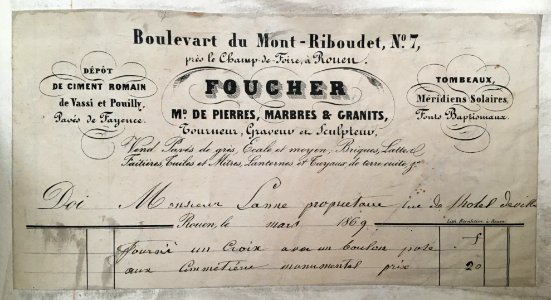 Boulevart du Mont-Riboudet, N.º 7,
près le Champ-de-Foire, à Rouen.
DÉPÔT
DE CIMENT ROMAIN
de Vassi et Pouilly,
Pavés de Fayence.
FOUCHER
M.D DE PIERRES, MARBRES & GRANITS,
Tourneur, Graveur et Sculpteur,
TOMBEAUX,
Méridiens Solaires,
Fonts Baptismaux.
Vend Pavés de grès, Ecale et moyen, Briques, Lattes
Faîtières, Tuiles et Mitres, Lanternes et Tuyaux de terre cuite &.
Doi Monsieur Lanne propriétaire rue de l'hotel de ville
Rouen, le mars 1869
Lith. à Rouen
fournie un Croix avec un boulon posé f
aux Cimmetière monumental prix 20